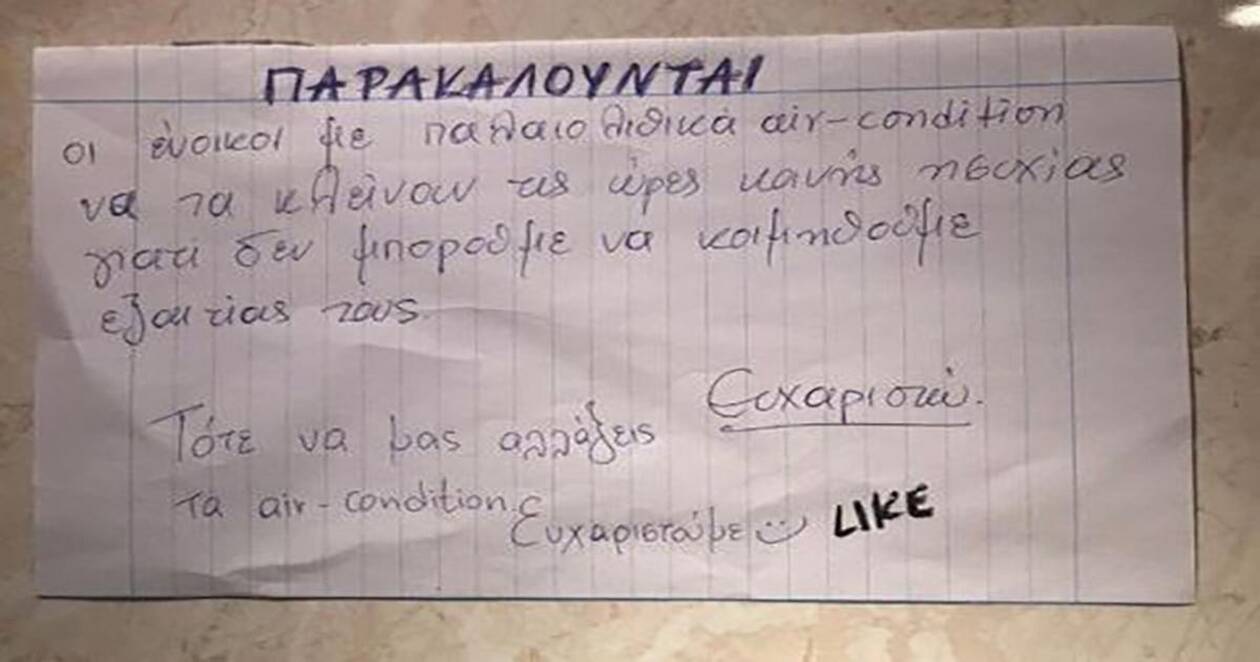 ΠΑΡΑΚΑΛΟΥΝΤΑΙ
οι ένοικοι με παλαιολιθικά air-condition
να τα κλείνουν τις ώρες κοινής ησυχίας
γιατί δεν μπορούμε να κοιμηθούμε
εξαιτίας τους.
Ευχαριστώ.
Τότε να μας αλλάξεις
τα air-condition.
Ευχαριστούμε :) LIKE